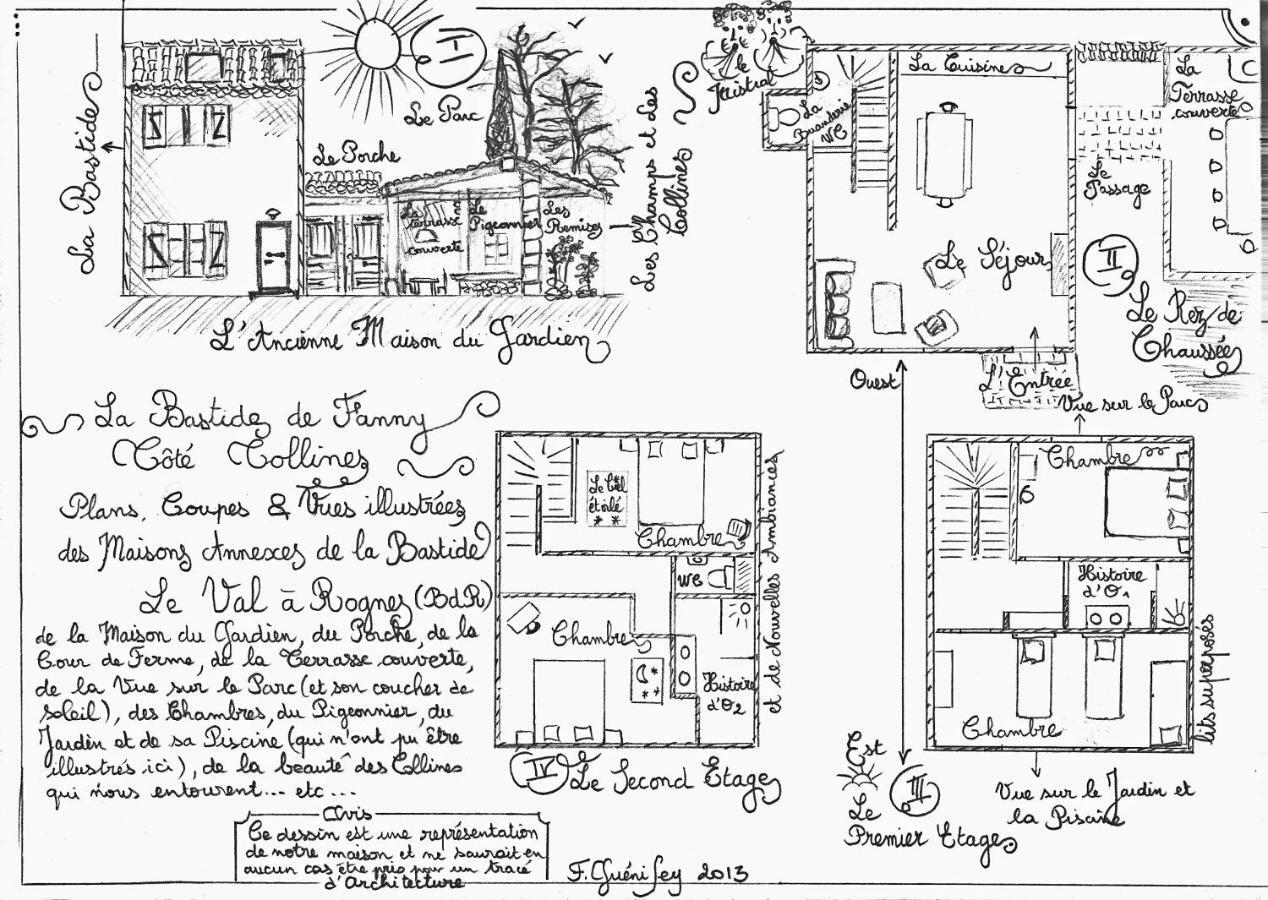 La Bastide
I
Le Parc
Le Porche
La terrasse couverte
Le Pigeonnier
Les Remises
Les Champs et Les
Collines
L'Ancienne Maison du Gardien
le
Mistral
La Cuisine
La
Buanderie
WC
La
Terrasse
couverte
Le
Passage
Le Séjour
II
Le Rez de
Chaussée
L'Entrée
Ouest
Vue sur le Parc
La Bastide de Fanny
Côté Collines
Plans, Coupes & Vues illustrées
des Maisons Annexes de la Bastide
Le Val à Rognes (BdR)
de la Maison du Gardien, du Porche, de la
Cour de Ferme, de la Terrasse couverte,
de la Vue sur le Parc (et son coucher de
soleil), des Chambres, du Pigeonnier, du
Jardin et de sa Piscine (qui n'ont pu être
illustrés ici), de la beauté des Collines
qui nous entourent... etc...
Avis
Ce dessin est une représentation
de notre maison et ne saurait en
aucun cas être pris pour un tracé
d'Architecture
F. Guénifey 2013
Le Ciel
étoilé
Chambre
WC
Chambre
Histoire
d'O2
et de Nouvelles Ambiances
IV
Le Second Etage
Chambre
Histoire
d'O1
Chambre
lits superposés
Est
III
Le
Premier Etage
Vue sur le Jardin et
la Piscine